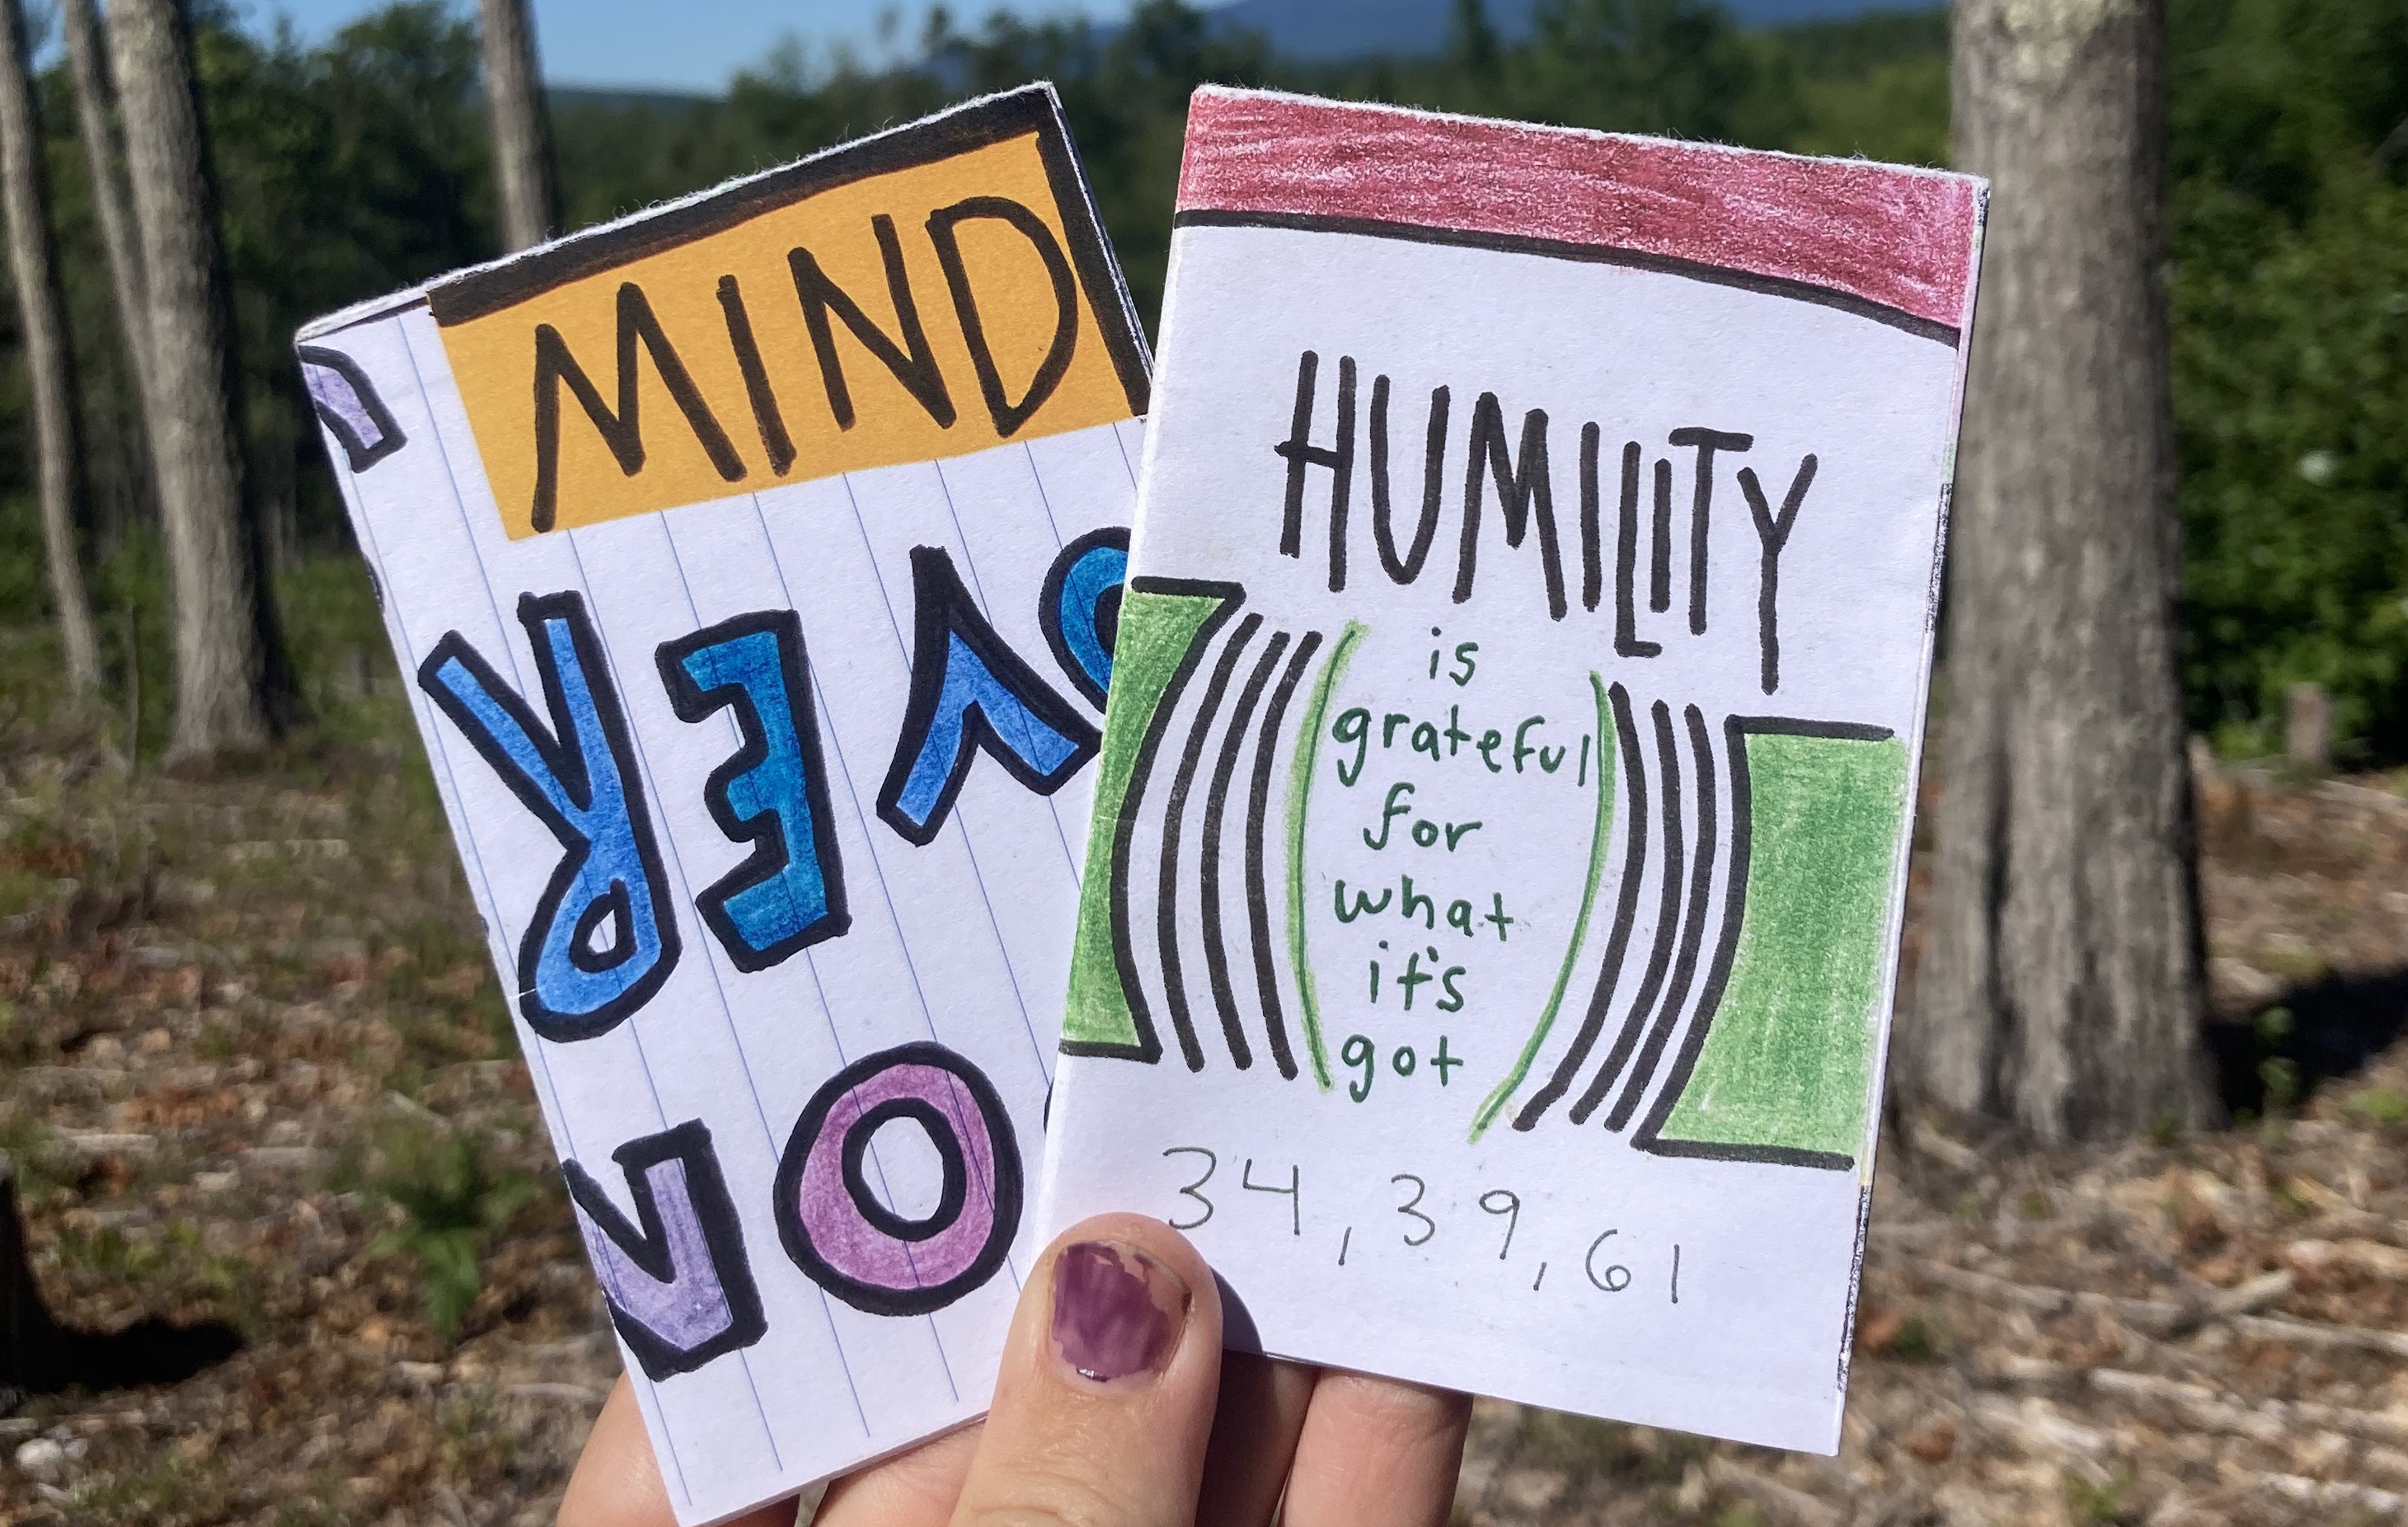 MIND
OVER
HUMILITY
is
grateful
for
what
it's
got
34, 39, 61